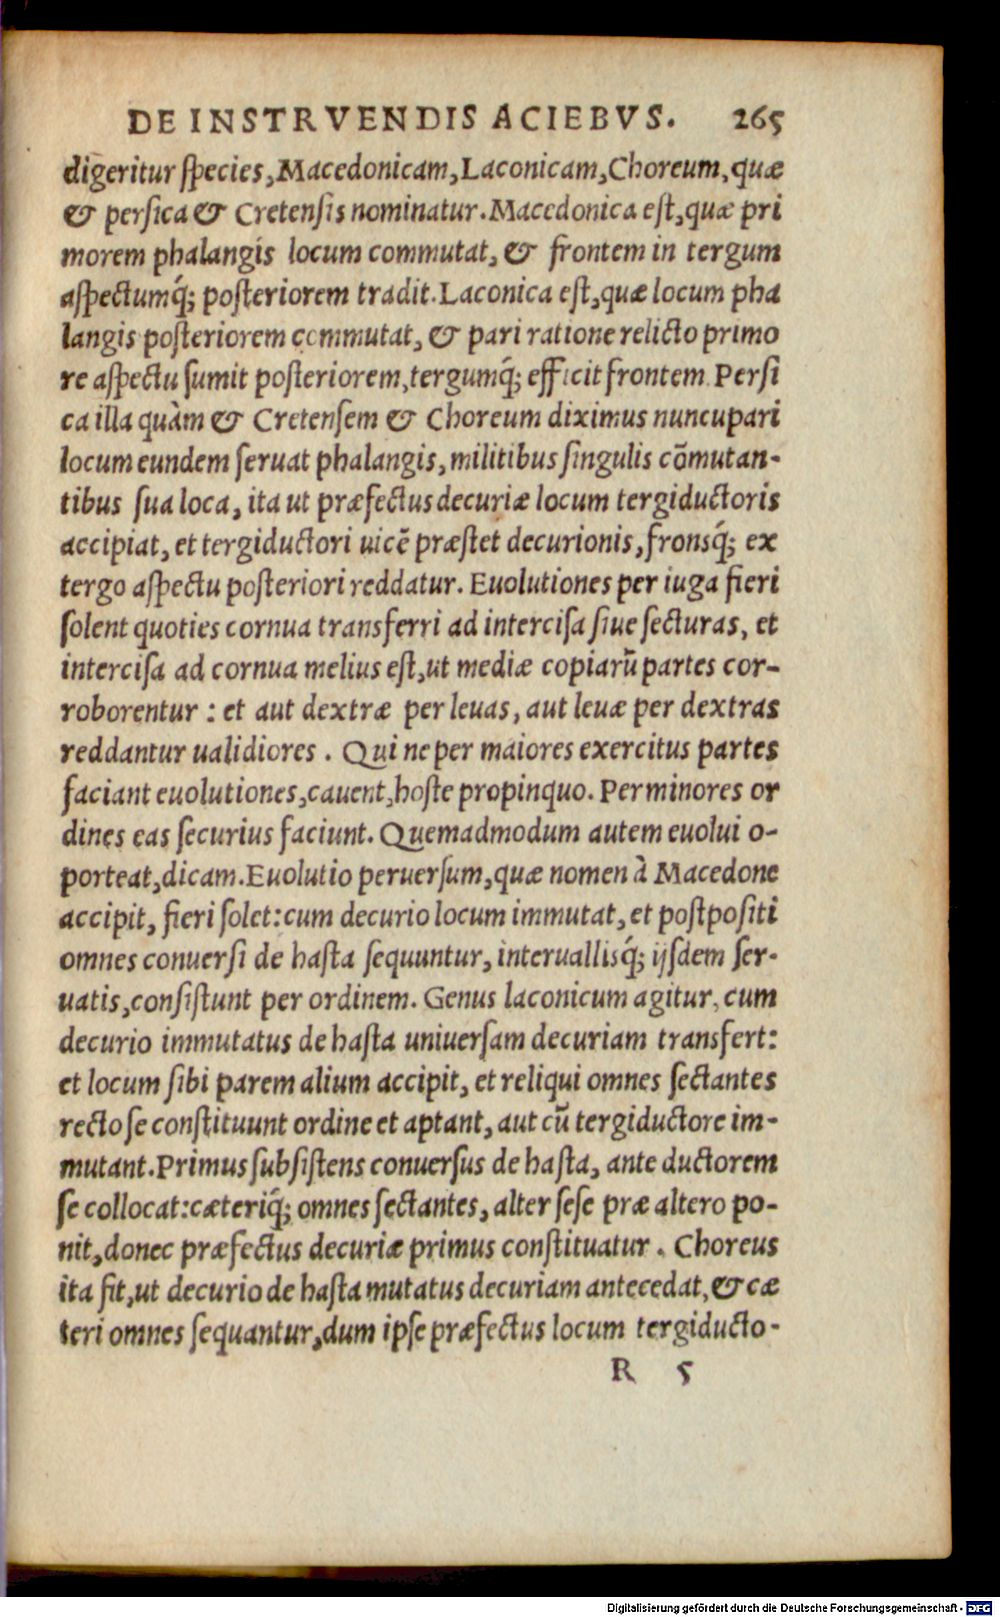 DE INSTRVENDIS ACIEBVS. 265
digeritur ſpecies, Macedonicam, Laconicam, Choreum, quæ
& perſica & Cretenſis nominatur. Macedonica eſt, quæ pri
morem phalangis locum commutat, & frontem in tergum
aſpectumq́; poſteriorem tradit. Laconica eſt, quæ locum pha
langis poſteriorem commutat, & pari ratione relicto primo
re aſpectu ſumit poſteriorem, tergumq́; efficit frontem. Perſi
ca illa quàm & Cretenſem & Choreum diximus nuncupari
locum eundem ſeruat phalangis, militibus ſingulis cōmutan-
tibus ſua loca, ita ut præfectus decuriæ locum tergiductoris
accipiat, et tergiductori uicē præſtet decurionis, fronsq́; ex
tergo aſpectu poſteriori reddatur. Euolutiones per iuga fieri
ſolent quoties cornua transferri ad interciſa ſiue ſecturas, et
interciſa ad cornua melius eſt, ut mediæ copiarũ partes cor-
roborentur : et aut dextræ per leuas, aut leuæ per dextras
reddantur ualidiores. Qui ne per maiores exercitus partes
faciant euolutiones, cauent, hoſte propinquo. Per minores or
dines eas ſecurius faciunt. Quemadmodum autem euolui o-
porteat, dicam. Euolutio peruerſum, quæ nomen à Macedone
accipit, fieri ſolet: cum decurio locum immutat, et poſtpoſiti
omnes conuerſi de haſta ſequuntur, interuallisq́; ijſdem ſer-
uatis, conſiſtunt per ordinem. Genus laconicum agitur, cum
decurio immutatus de haſta uniuerſam decuriam transfert:
et locum ſibi parem alium accipit, et reliqui omnes ſectantes
recto ſe conſtituunt ordine et aptant, aut cũ tergiductore im-
mutant. Primus ſubſiſtens conuerſus de haſta, ante ductorem
ſe collocat: cæteriq́; omnes ſectantes, alter ſeſe præ altero po-
nit, donec præfectus decuriæ primus conſtituatur. Choreus
ita fit, ut decurio de haſta mutatus decuriam antecedat, & cæ
teri omnes ſequantur, dum ipſe præfectus locum tergiducto-
R 5
Digitalisierung gefördert durch die Deutsche Forschungsgemeinschaft - DFG